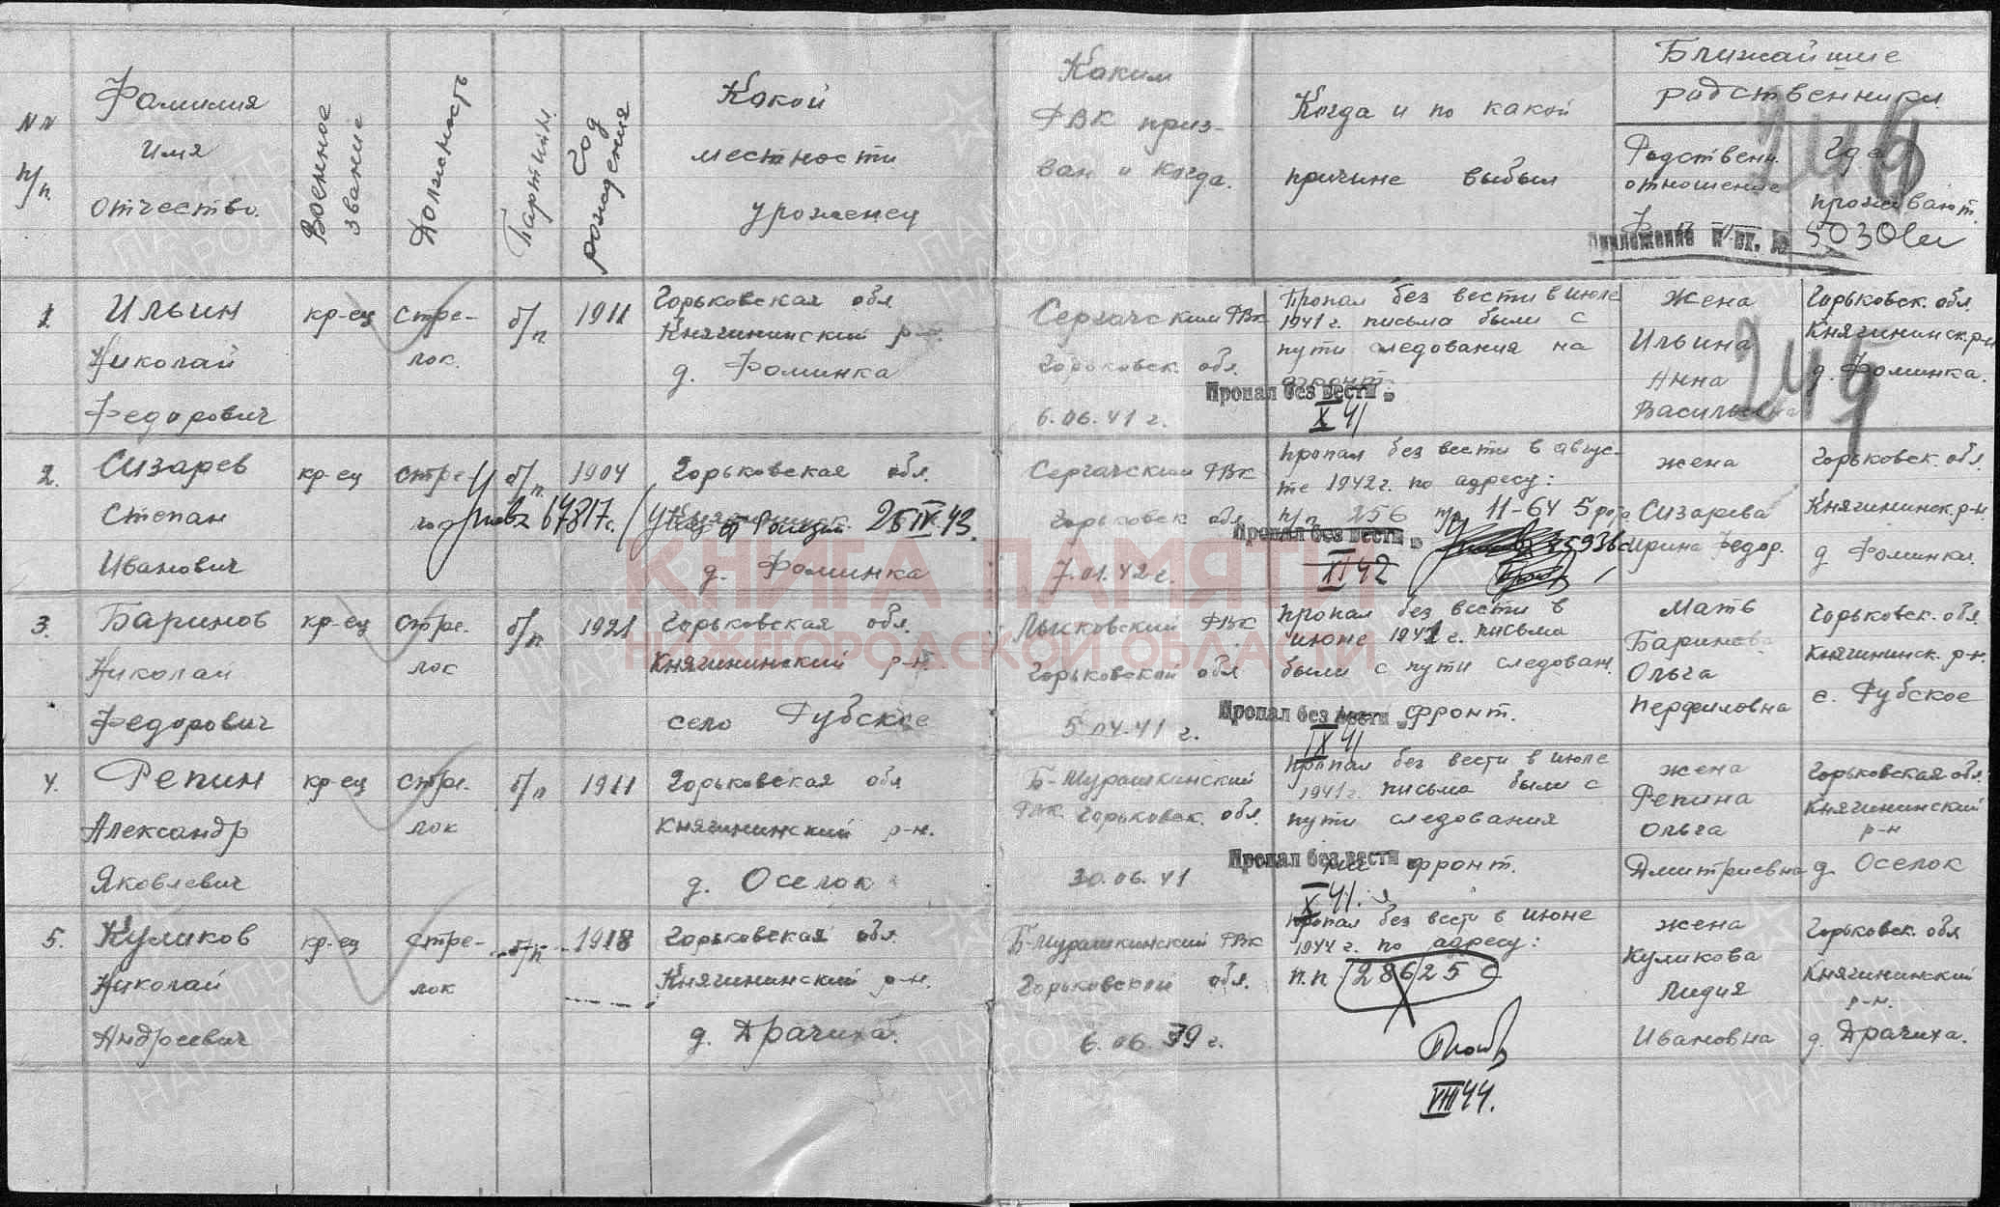 NN
п/п.
Фамилия
Имя
Отчество.
Военное
звание
Должность
Партийн.
Год
рождения
Какой
местности
уроженец
Каким
РВК приз-
ван и когда.
Когда и по какой
причине выбыл
Ближайшие
родственники.
Родственн.
отношение
Где
проживают.
Приложение к вх. № 50301
246
1.
Ильин
Николай
Федорович
кр-ец
стре-
лок.
б/п
1911
Горьковская обл
Княгининский р-н.
д. Фоминка
Сергачским РВК
Горьковск. обл.
6.06.41 г.
Пропал без вести в июле
1941 г. письма были с
пути следования на
фронт.
Пропал без вести
X 41
Жена
Ильина
Анна
Васильевна
Горьковск. обл.
Княгининск. р-н
д. Фоминка.
245
2.
Сизарев
Степан
Иванович
кр-ец
стре-
б/п.
1904
Горьковская обл.
67817с.
25 IX.43.
д. Фоминка
Сергачский РВК
Горьковск обл
7.01.42 г.
Пропал без вести в авгус-
те 1942 г. по адресу:
п/п 256 11-64 5 рота
Пропал без вести
XI 42
жена
Сизарева
Ирина Федор.
Горьковск. обл.
Княгининск. р-н.
д Фоминки.
3.
Баринов
Николай
Федорович
кр-ец
стре.
лок
б/п
1921
Горьковская обл.
Княгининский р-н.
село Рубское
Лысковский РВК
Горьковской обл
5 04.41 г.
Пропал без вести в
июне 1941 г. письма
были с пути следован.
Пропал без вести фронт.
IX 41
Мать
Баринова
Ольга
Перфиловна
Горьковск. обл.
Княгининск. р-н.
с. Рубское
4.
Репин
Александр
Яковлевич
кр-ец
стре.
лок
б/п
1911
Горьковская обл
Княгининский р-н.
д. Оселок
Б-Мурашкинский
РВК Горьковск. обл.
30.06.41
Пропал без вести в июле
1941 г. письма были с
пути следования
на фронт.
Пропал без вести
X 41.
жена
Репина
Ольга
Дмитриевна
Горьковская обл.
Княгининский
р-н
д. Оселок
5.
Куликов
Николай
Андреевич
кр-ец
стре-
лок
б/п
1918
Горьковская обл
Княгининский р-н.
д. Драчиха.
Б-Мурашкинский РВК
Горьковской обл.
6.06.39 г.
Пропал без вести в июне
1944 г. по адресу:
п.п. 28625 с
VIII 44.
жена
Куликова
Лидия
Ивановна
Горьковск. обл
Княгининский
р-н.
д. Драчиха.
КНИГА ПАМЯТИ
НИЖЕГОРОДСКОЙ ОБЛАСТИ
ПАМЯТЬ
НАРОДА